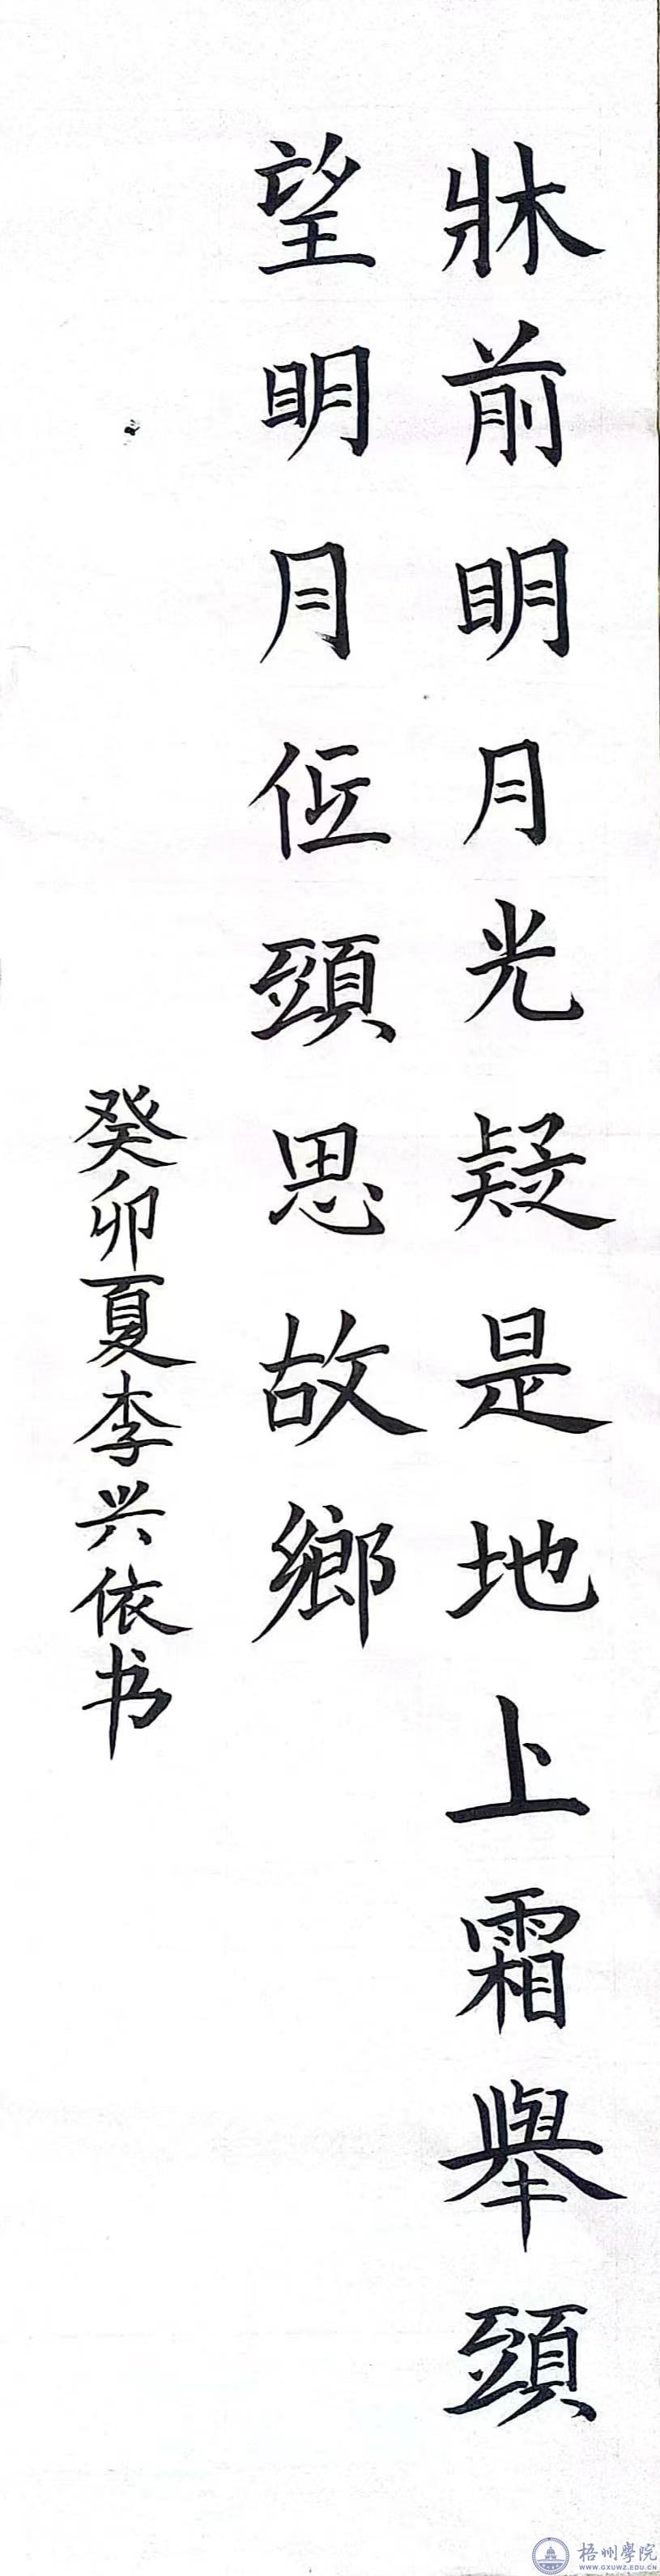 牀前明月光疑是地上霜舉頭
望明月低頭思故鄉
癸卯夏李兴依书
梧州學院
WWW.GXUWZ.EDU.CN